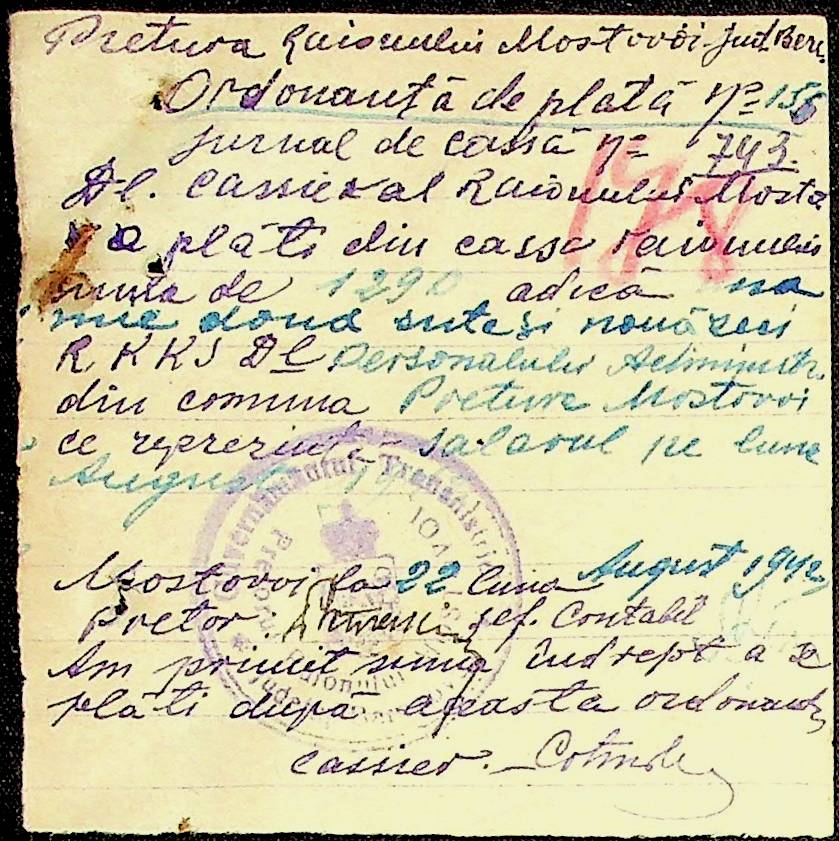 Pretura Raionului Mostovoi jud. Bere.
Ordonanță de plată № 156
jurnal de cassă № 743.
Dl. Cassier al Raionului Mosto
va plăti din cassa raionului
suma de 1290 adică una
mie două sute și nouăzeci
R K K S Dl Personalului Administr.
din comuna Preture Mostovoi
ce reprezintă salarul pe luna
August 1942
Guvernământul Transnistria
Mostovoi la 22 luna August 1942
Pretor: șef. Contabil
Am primit suma îndrept a se
plăti după aceasta ordonanță
Cassier.